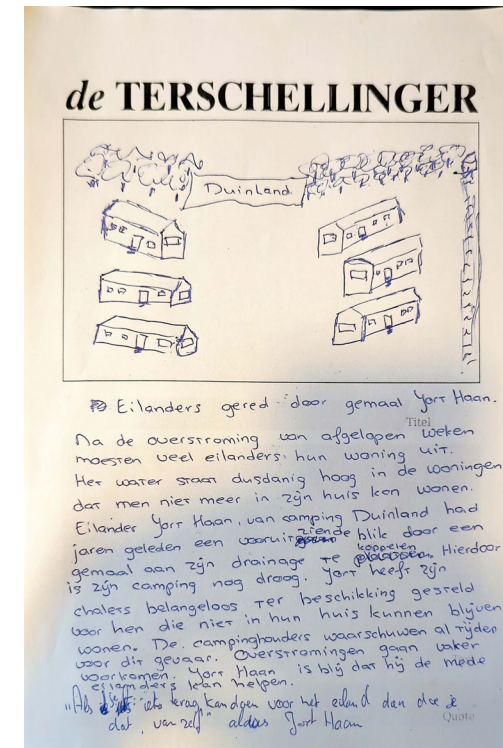 de TERSCHELLINGER
Duinland
Eilanders gered door gemaal Jorr Haan.
Titel
Na de overstroming van afgelopen weken
moesten veel eilanders hun woning uit.
Het water staat dusdanig hoog in de woningen
dat men niet meer in zijn huis kan wonen.
Eilander Jorr Haan, van camping Duinland had
jaren geleden een vooruitziende blik door een
gemaal aan zijn drainage te koppelen. Hierdoor
is zijn camping nog droog. Jorr heeft zijn
chalets belangeloos ter beschikking gesteld
voor hen die niet in hun huis kunnen blijven
wonen. De campinghouders waarschuwen al tijden
voor dit gevaar. Overstromingen gaan vaker
voorkomen. Jorr Haan is blij dat hij de mede
eilanders kan helpen.
"Als je iets terug kan doen voor het eiland dan doe je
dat van zelf" aldus Jorr Haan
Quote